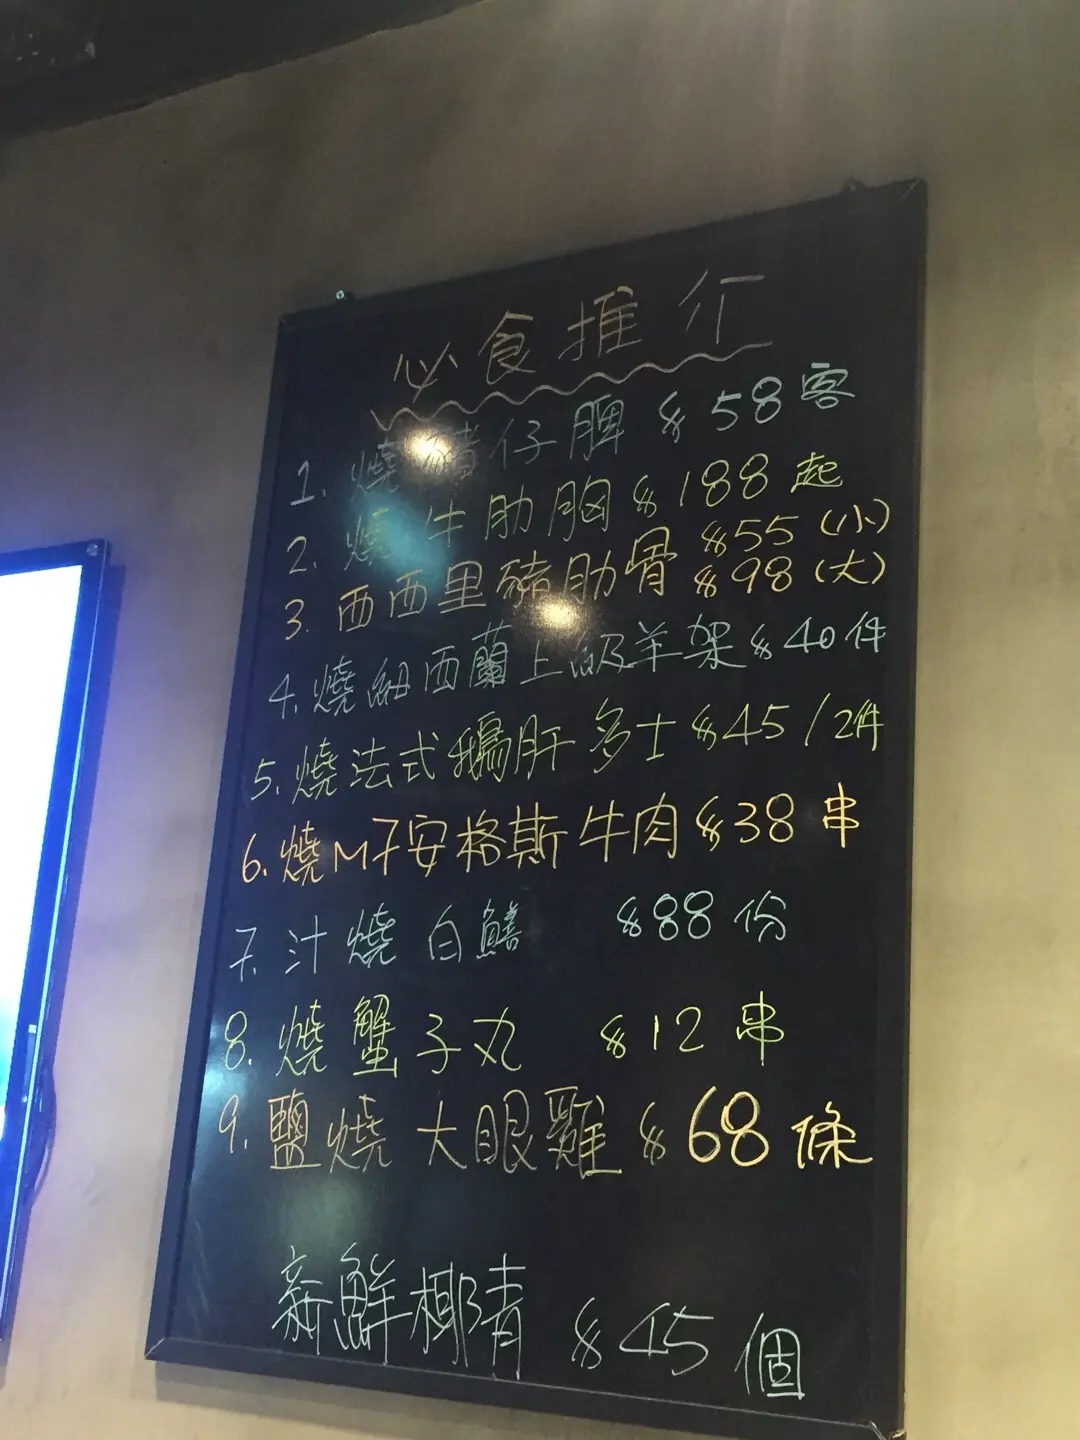 必食推介
1. 燒豬仔脾 $58客
2. 燒牛肋胸 $188起
3. 西西里豬肋骨 $55(小)
$98(大)
4. 燒紐西蘭上級羊架 $40件
5. 燒法式鵝肝多士 $45/2件
6. 燒M7安格斯牛肉 $38串
7. 汁燒白鱔 $88份
8. 燒蟹子丸 $12串
9. 鹽燒大眼雞 $68條
新鮮椰青 $45個